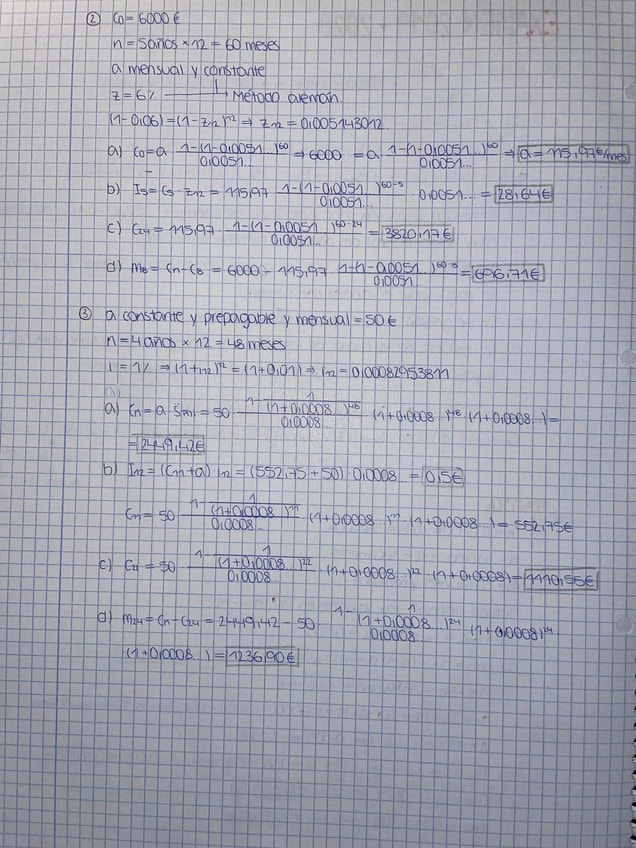 ② C0 = 6000 €
n = 5 años × 12 = 60 meses
a mensual y constante
z = 6% → Método alemán
(1-0,06) = (1-z12)^12 ⇒ z12 = 0,005143012
a) C0 = a (1-(1-0,0051...)^60)/0,0051... ⇒ 6000 = a · (1-(1-0,0051...)^60)/0,0051... ⇒ a = 115,97 €/mes
b) I5 = C5 · z12 = 115,97 (1-(1-0,0051...)^60-5)/0,0051... · 0,0051... = 28,64 €
c) C24 = 115,97 · (1-(1-0,0051...)^60-24)/0,0051... = 3820,17 €
d) M8 = Cn - C8 = 6000 - 115,97 (1-(1-0,0051...)^60-8)/0,0051... = 696,71 €
③ a constante y prepagable y mensual = 50 €
n = 4 años × 12 = 48 meses
i = 1% ⇒ (1+i12)^12 = (1+0,01) ⇒ i12 = 0,00082953811
a) Cn = a · S̈n|i = 50 · (1-1/(1+0,0008...)^48)/0,0008... · (1+0,0008...)^48 · (1+0,0008...) =
= 2449,42 €
b) I12 = (C11+a) i12 = (552,75 + 50) · 0,0008... = 0,5 €
C11 = 50 · (1-1/(1+0,0008...)^11)/0,0008... · (1+0,0008...)^11 · (1+0,0008...) = 552,75 €
c) C22 = 50 · (1-1/(1+0,0008...)^22)/0,0008... · (1+0,0008...)^22 · (1+0,0008) = 1110,55 €
d) M24 = Cn - C24 = 2449,42 - 50 · (1-1/(1+0,0008...)^24)/0,0008... · (1+0,0008)^24 ·
(1+0,0008...) = 1236,90 €